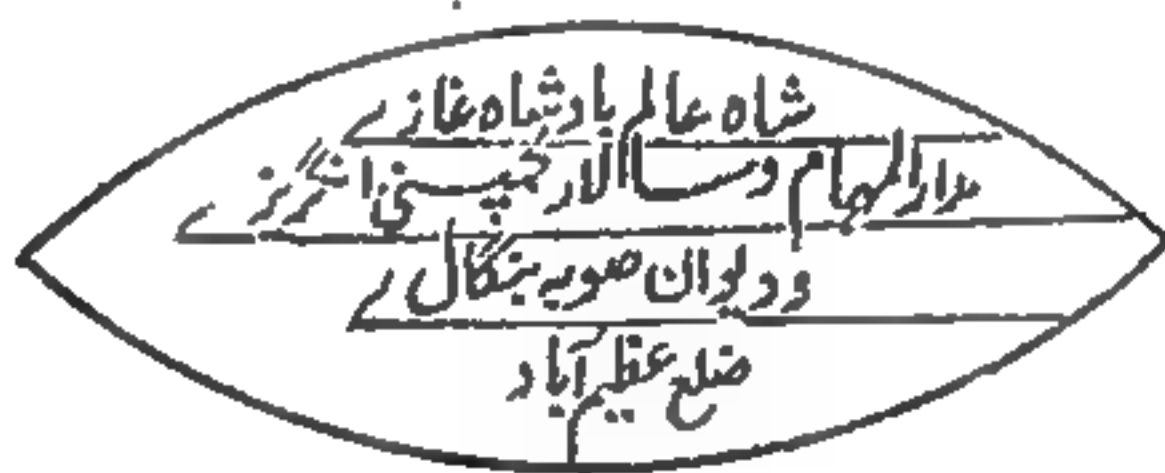 شاه عالم بادشاه غازے
مدار المهام وسالار کمپنی انگریزے
و دیوان صوبه بنگال ے
ضلع عظیم آباد